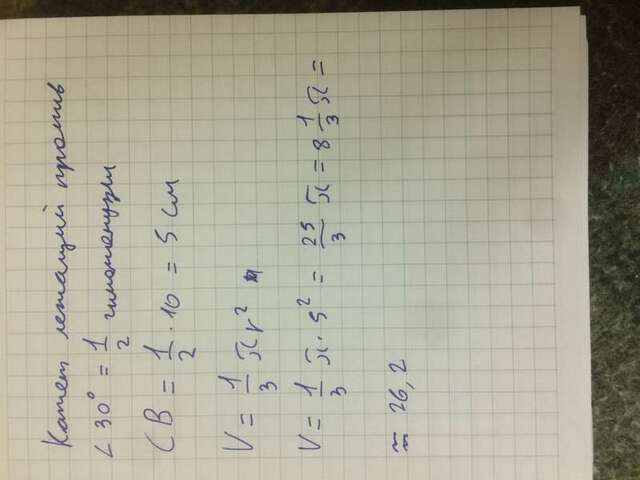 Катет лежащий против
∠ 30° = 1/2 гипотенузы
CB = 1/2 · 10 = 5 см
V = 1/3 πr²
V = 1/3 π · 5² = 25/3 π = 8 1/3 π =
≈ 26,2